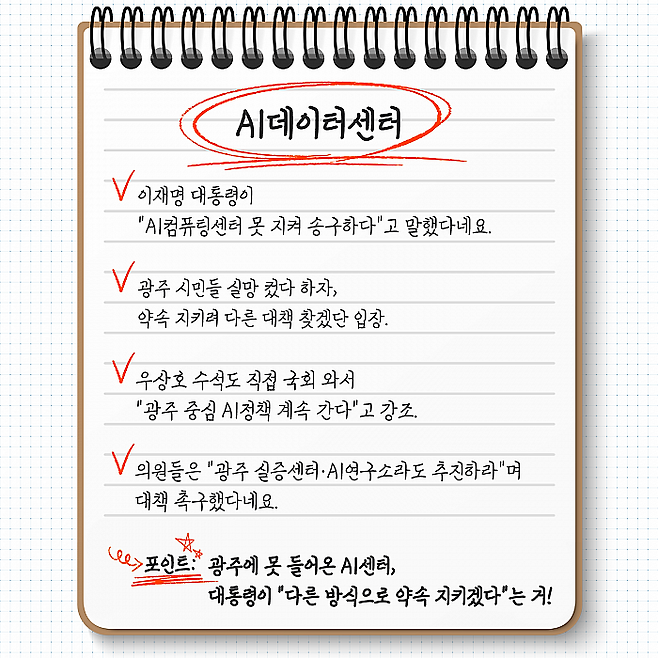 AI데이터센터
이재명 대통령이
"AI컴퓨팅센터 못 지켜 송구하다"고 말했다네요.
광주 시민들 실망 컸다 하자,
약속 지키려 다른 대책 찾겠단 입장.
우상호 수석도 직접 국회 와서
"광주 중심 AI정책 계속 간다"고 강조.
의원들은 "광주 실증센터·AI연구소라도 추진하라"며
대책 촉구했다네요.
포인트: 광주에 못 들어온 AI센터,
대통령이 "다른 방식으로 약속 지키겠다"는 거!